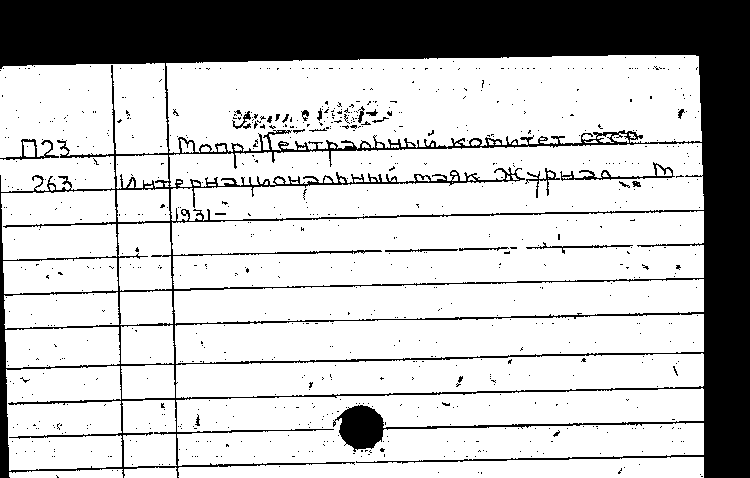 П23 Мопр. Центральный комитет СССР.
263 Интернациональный маяк Журнал М
1931-